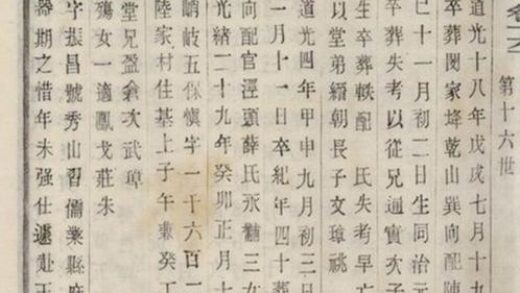 第十六世
道光十八年戊戌七月十九
卒葬閔家埄乾山巽向配陳
巳十一月初二日生同治元
卒葬失考以從兄通實次子
生卒葬軼配 氏失考早亡
以堂弟纘朝長子文璋祧
道光四年甲申九月初三日
一月十一日卒紀年四十
中配官涇頭薛氏永三女
光緒二十九年癸卯正月十
峭岐五保慎字一千六百二
陸家村住基上子午兼癸丁
堂兄盈侖次武璋
殤女一適鳳戈莊朱
字張昌號秀山習儒業縣府
器期之惜年未强仕遽赴玉